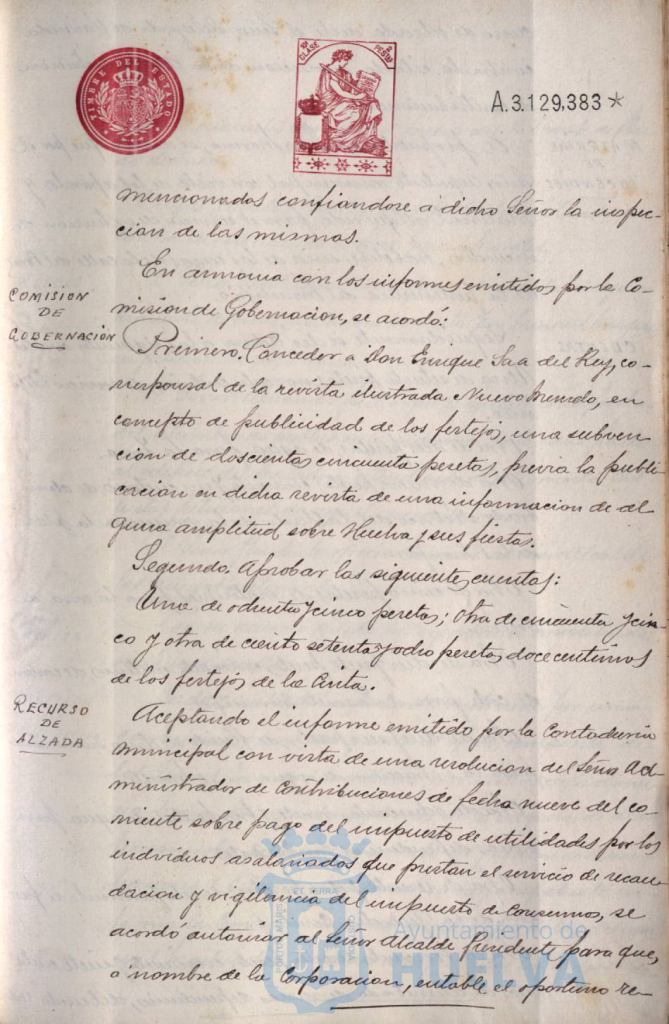 TIMBRE DEL ESTADO
10ª CLASE 2 PESTAS
A.3.129,383 *
mencionadas confiandose a dicho Señor la inspec-
cion de las mismas.
COMISION
DE
GOBERNACIÓN
En armonia con los informes emitidos por la Co-
mision de Gobernacion, se acordó:
Primero. Conceder a Don Enrique Saa del Rey, co-
rresponsal de la revista ilustrada Nuevo Mundo, en
concepto de publicidad de los festejos, una subven
cion de doscientas cincuenta pesetas, previa la publi
cacion en dicha revista de una informacion de al
guna amplitud sobre Huelva y sus fiestas.
Segundo. Aprobar las siguientes cuentas:
Una de ochenta y cinco pesetas; otra de cincuenta y cin-
co y otra de ciento setenta y ocho pesetas doce centimos
de los festejos de la Cinta.
RECURSO
DE
ALZADA
Aceptando el informe emitido por la Contaduria
municipal con vista de una resolucion del Señor Ad-
ministrador de Contribuciones de fecha nueve del co-
rriente sobre pago del impuesto de utilidades por los
individuos asalariados que prestan el servicio de recau-
dacion y vigilancia del impuesto de Consumos, se
acordó autorizar al Señor Alcalde Presidente para que,
a nombre de la Corporacion, entable el oportuno re-
Ayuntamiento de
HUELVA